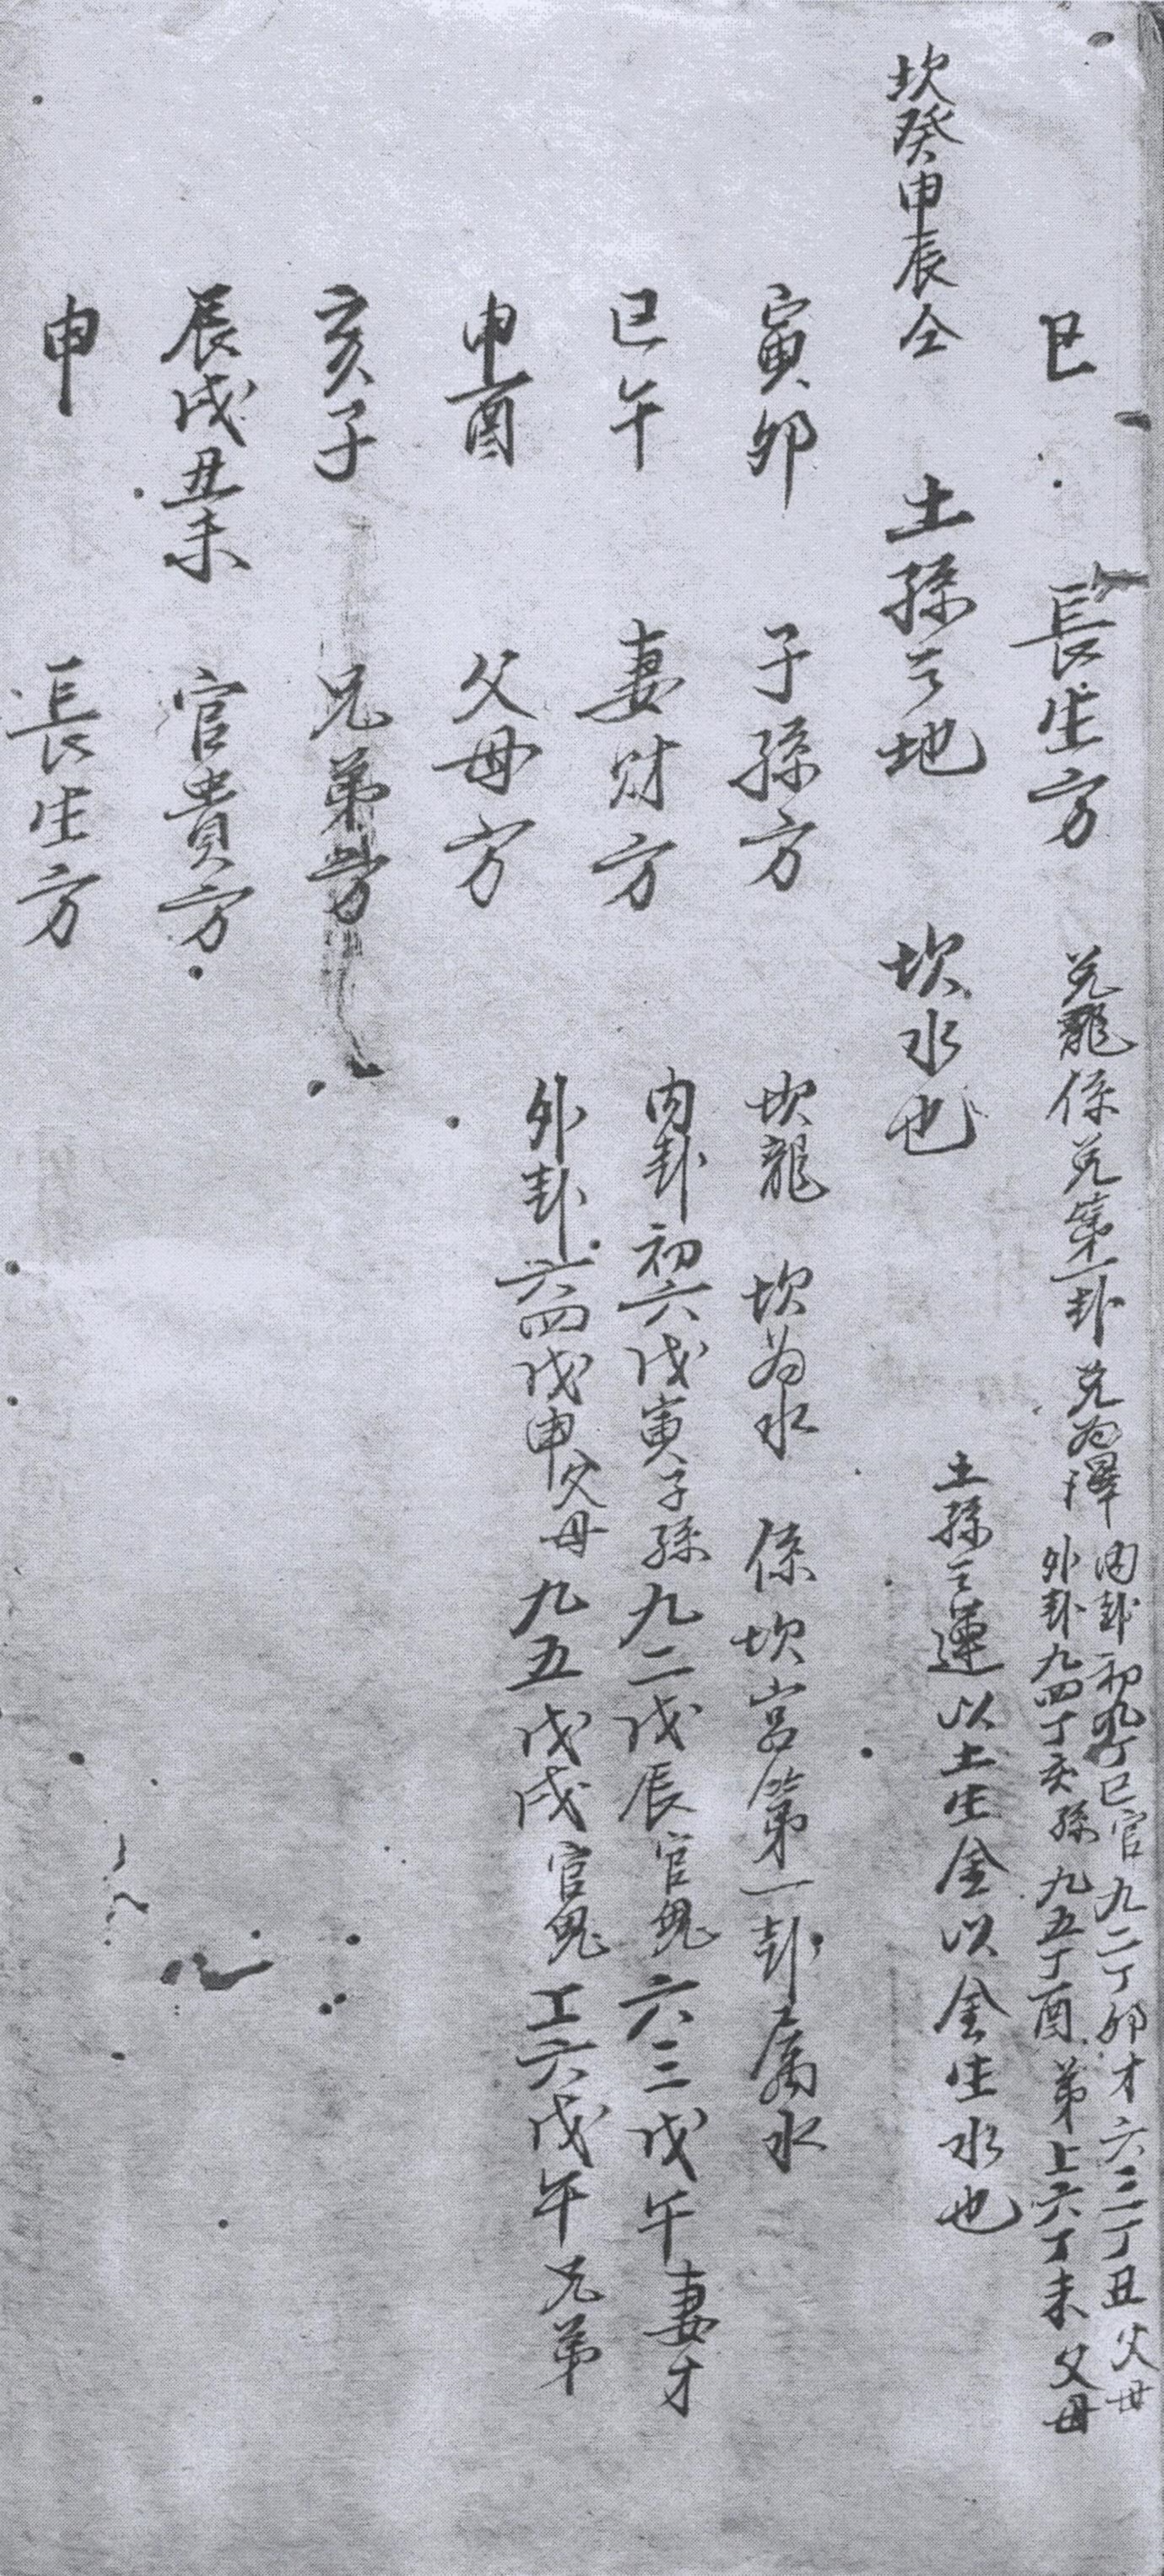 巳　長生方　兑龍係兑第一卦　兑为澤
内卦初九丁巳官九二丁卯才六三丁丑父母
外卦九四丁亥孫九五丁酉弟上六丁未父母
坎癸申辰仝　土孫亡地　坎水也
土孫亡運以土生金以金生水也
寅卯　子孫方　坎龍　坎为水　係坎宫第一卦属水
巳午　妻財方　内卦初六戊寅子孫九二戊辰官鬼六三戊午妻才
申酉　父母方　外卦六四戊申父母九五戊戌官鬼工六戊午兄弟
亥子　兄弟方
辰戌丑未　官貴方
申　長生方